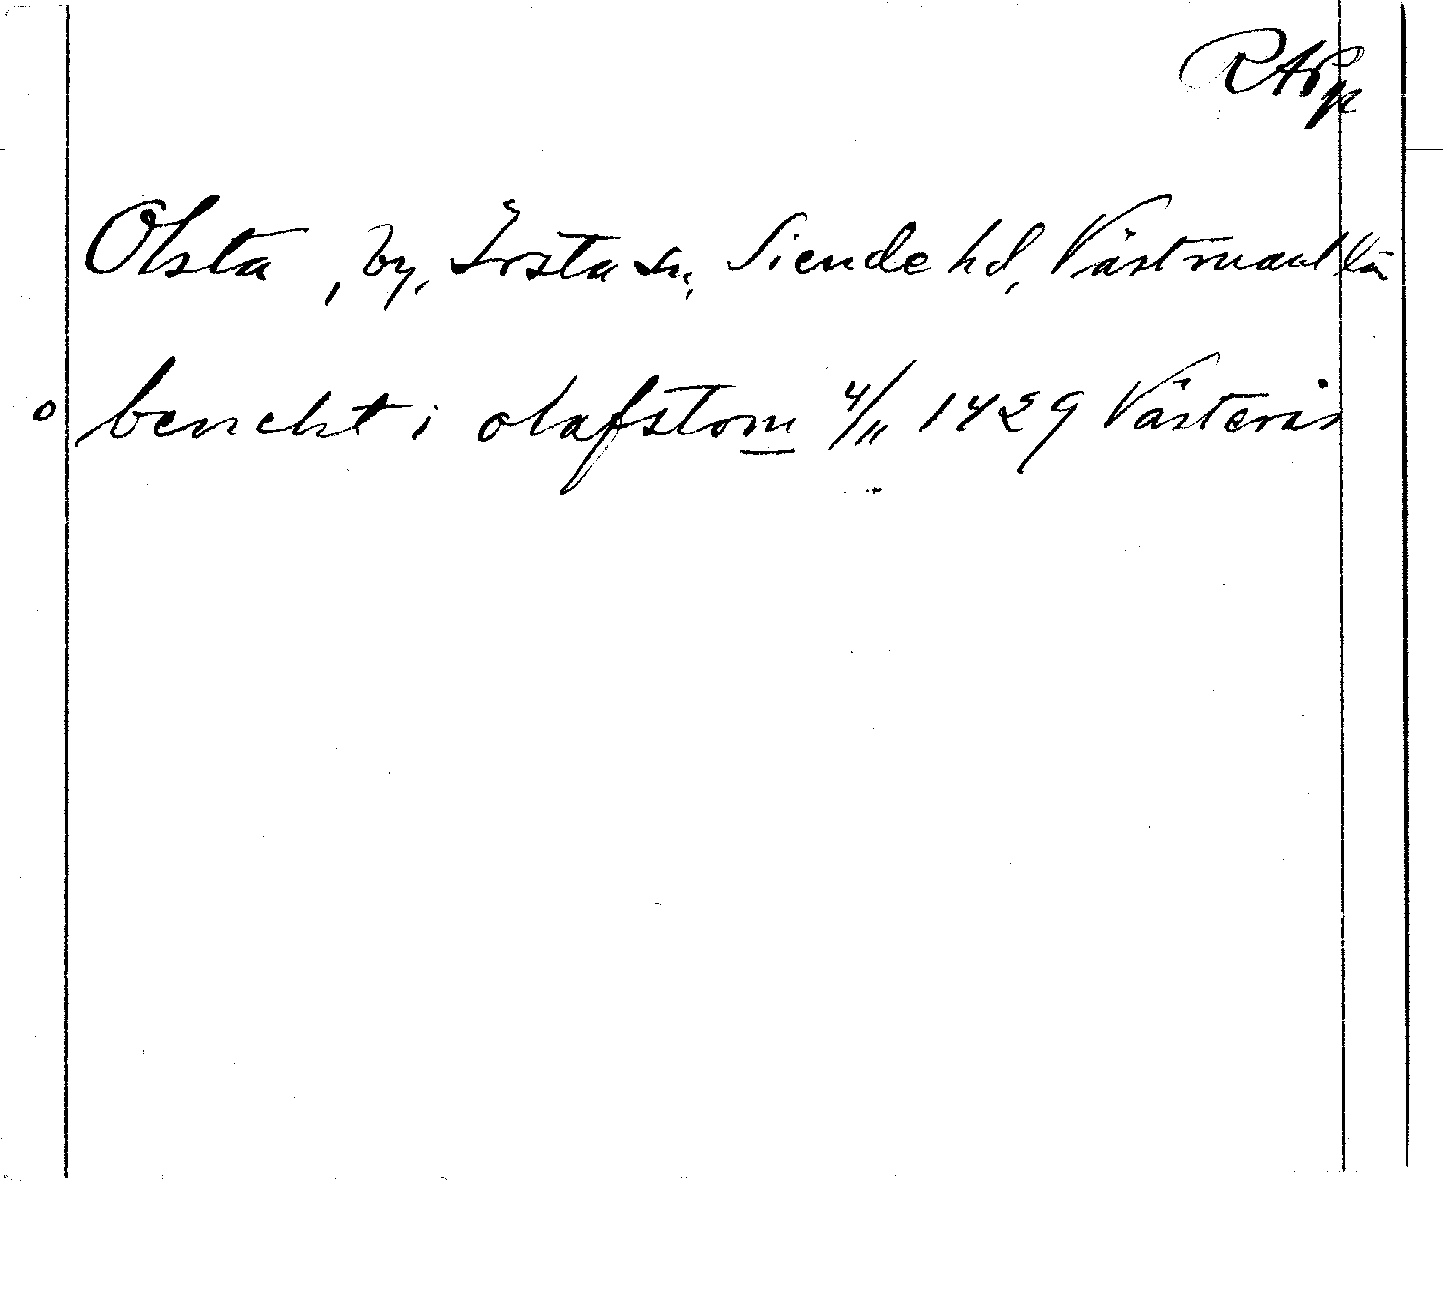 RAPp
Olsta, by, Irsta sn, Siende hd, Västmanl län
o benekt i olafstom 4/11 1429 Västerås